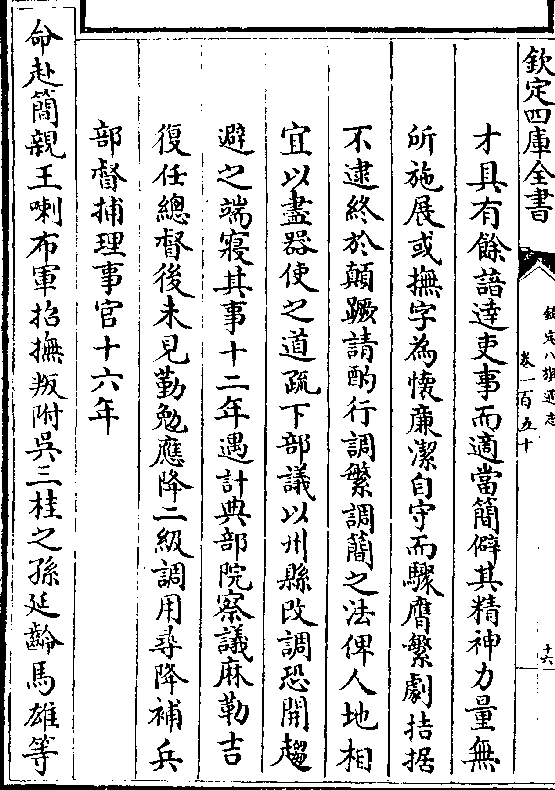 欽定四庫全書
欽定八旗通志
卷一百五十
十六
才具有餘諳達吏事而適當簡僻其精神力量無
所施展或撫字為懷廉潔自守而驟膺繁劇拮据
不逮終於顛蹶請酌行調繁調簡之法俾人地相
宜以盡器使之道疏下部議以州縣改調恐開趨
避之端寢其事十二年遇計典部院察議麻勒吉
復任總督後未見勤勉應降二級調用尋降補兵
部督捕理事官十六年
命赴簡親王喇布軍招撫叛附吳三桂之孫延齡馬雄等